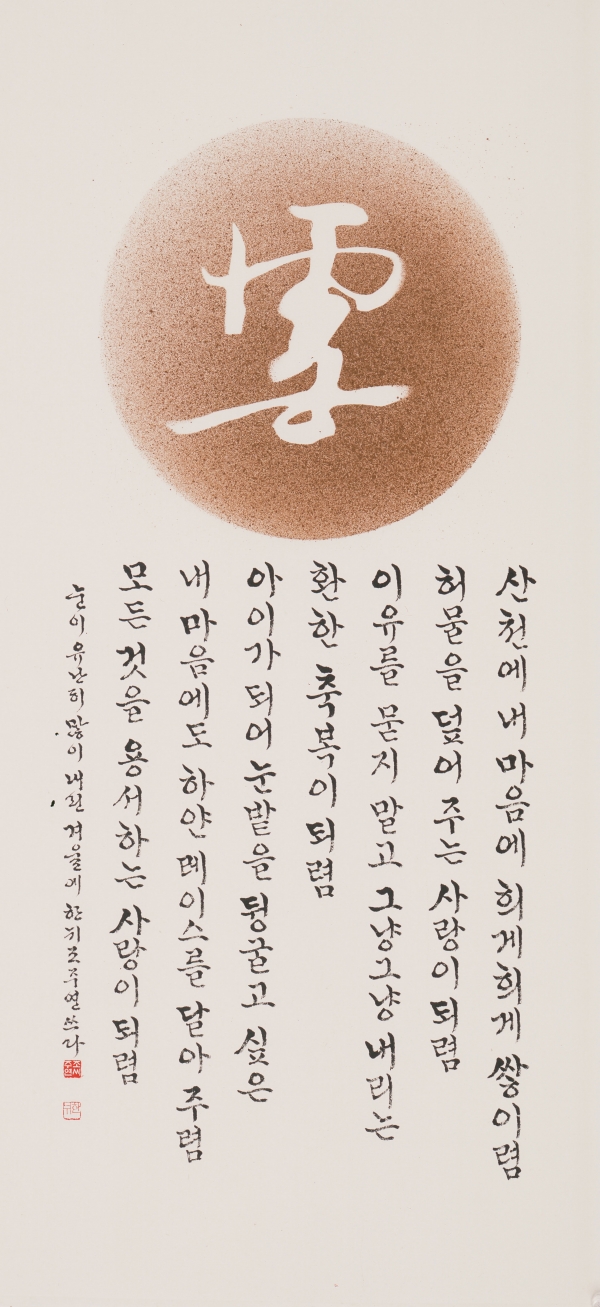 雪
산천에 내 마음에 희게희게 쌓이렴
허물을 덮어 주는 사랑이 되렴
이유를 묻지 말고 그냥그냥 내리는
환한 축복이 되렴
아이가 되어 눈밭을 뒹굴고 싶은
내 마음에도 하얀 레이스를 달아 주렴
모든 것을 용서하는 사랑이 되렴
눈이 유난히 많이 내린 겨울에 한뫼 조주연 쓰다